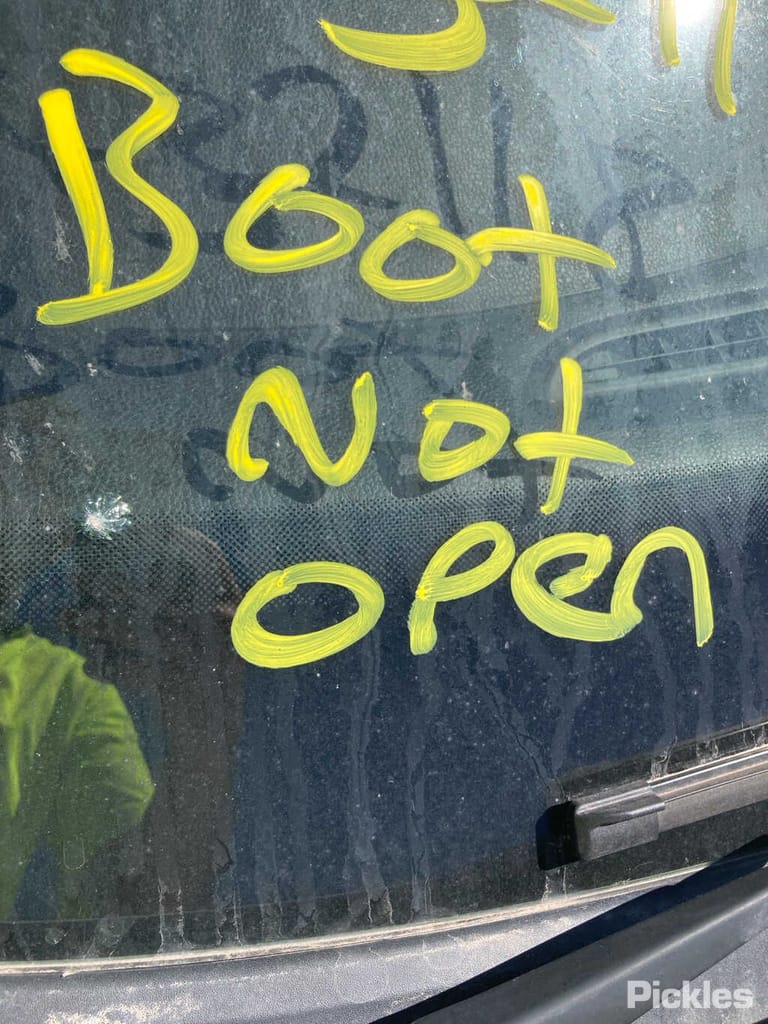 Boot
Not
open
Pickles